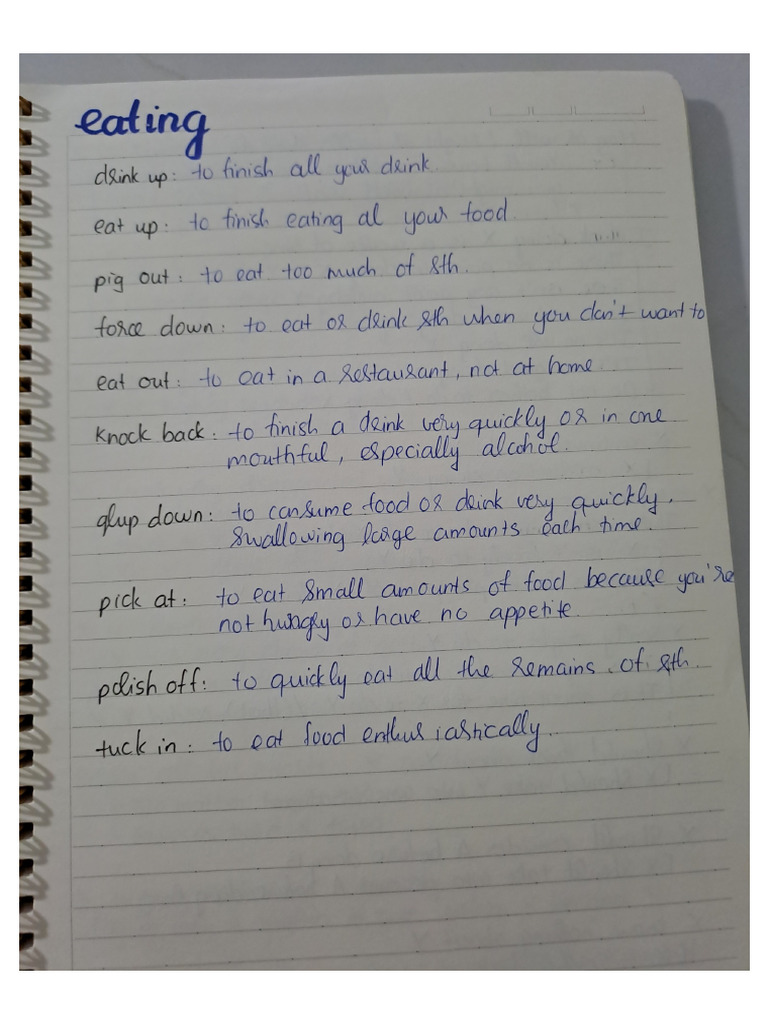 eating
drink up: to finish all your drink
eat up: to finish eating al your food
pig out: to eat too much of sth.
force down: to eat or drink sth when you don't want to
eat out: to eat in a restaurant, not at home
knock back: to finish a drink very quickly or in one
mouthful, especially alcohol.
glup down: to consume food or drink very quickly.
swallowing large amounts each time.
pick at: to eat small amounts of food because you're
not hungry or have no appetite
polish off: to quickly eat all the remains of sth.
tuck in: to eat food enthusiastically.